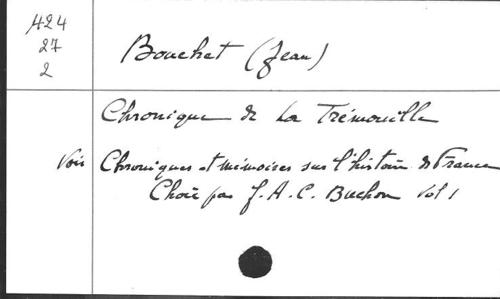 424
27
2
Bouchet (Jean)
Chronique de La Trémouille
Voir Chroniques et mémoires sur l'histoire de France
Choix par J. A. C. Buchon Vol 1